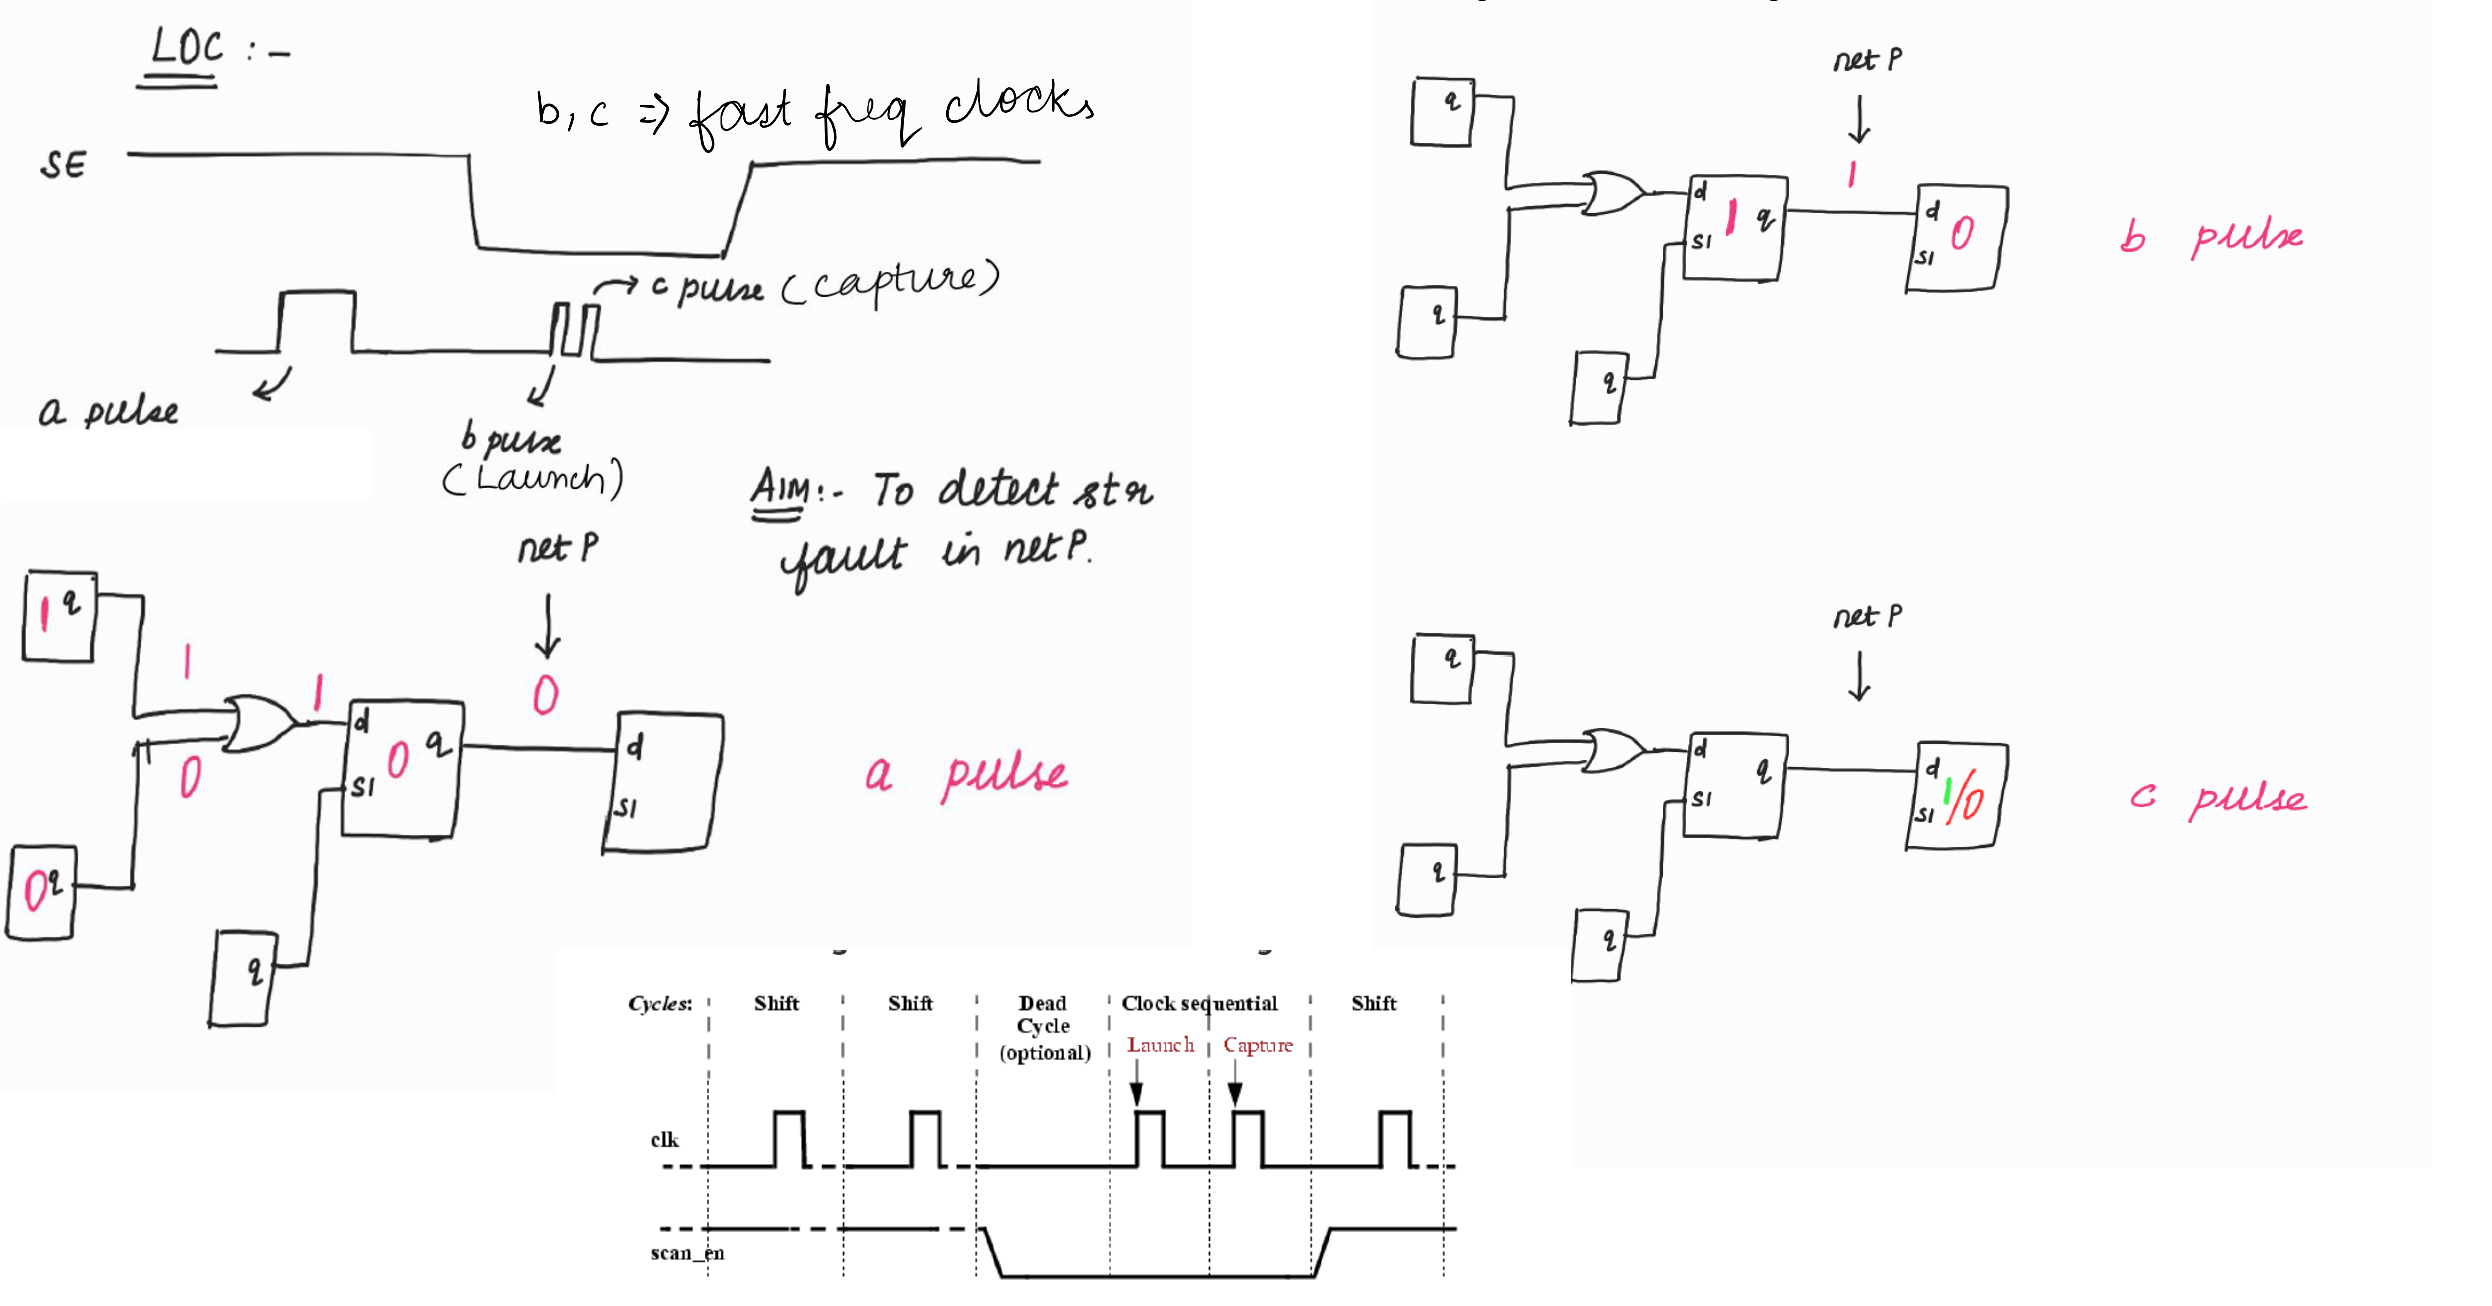 LOC :-
b, c => fast freq clocks
SE
c pulse (capture)
a pulse
b pulse
(Launch)
AIM:- To detect str
fault in net P.
net P
1 q
1
1
0
0
d
0 q
SI
d
SI
0 q
q
a pulse
net P
1
q
d
1 q
SI
d
0
SI
q
q
b pulse
net P
q
d
q
SI
d
1/0
SI
q
q
c pulse
Cycles: Shift Shift Dead Clock sequential Shift
Cycle
(optional) Launch Capture
clk
scan_en